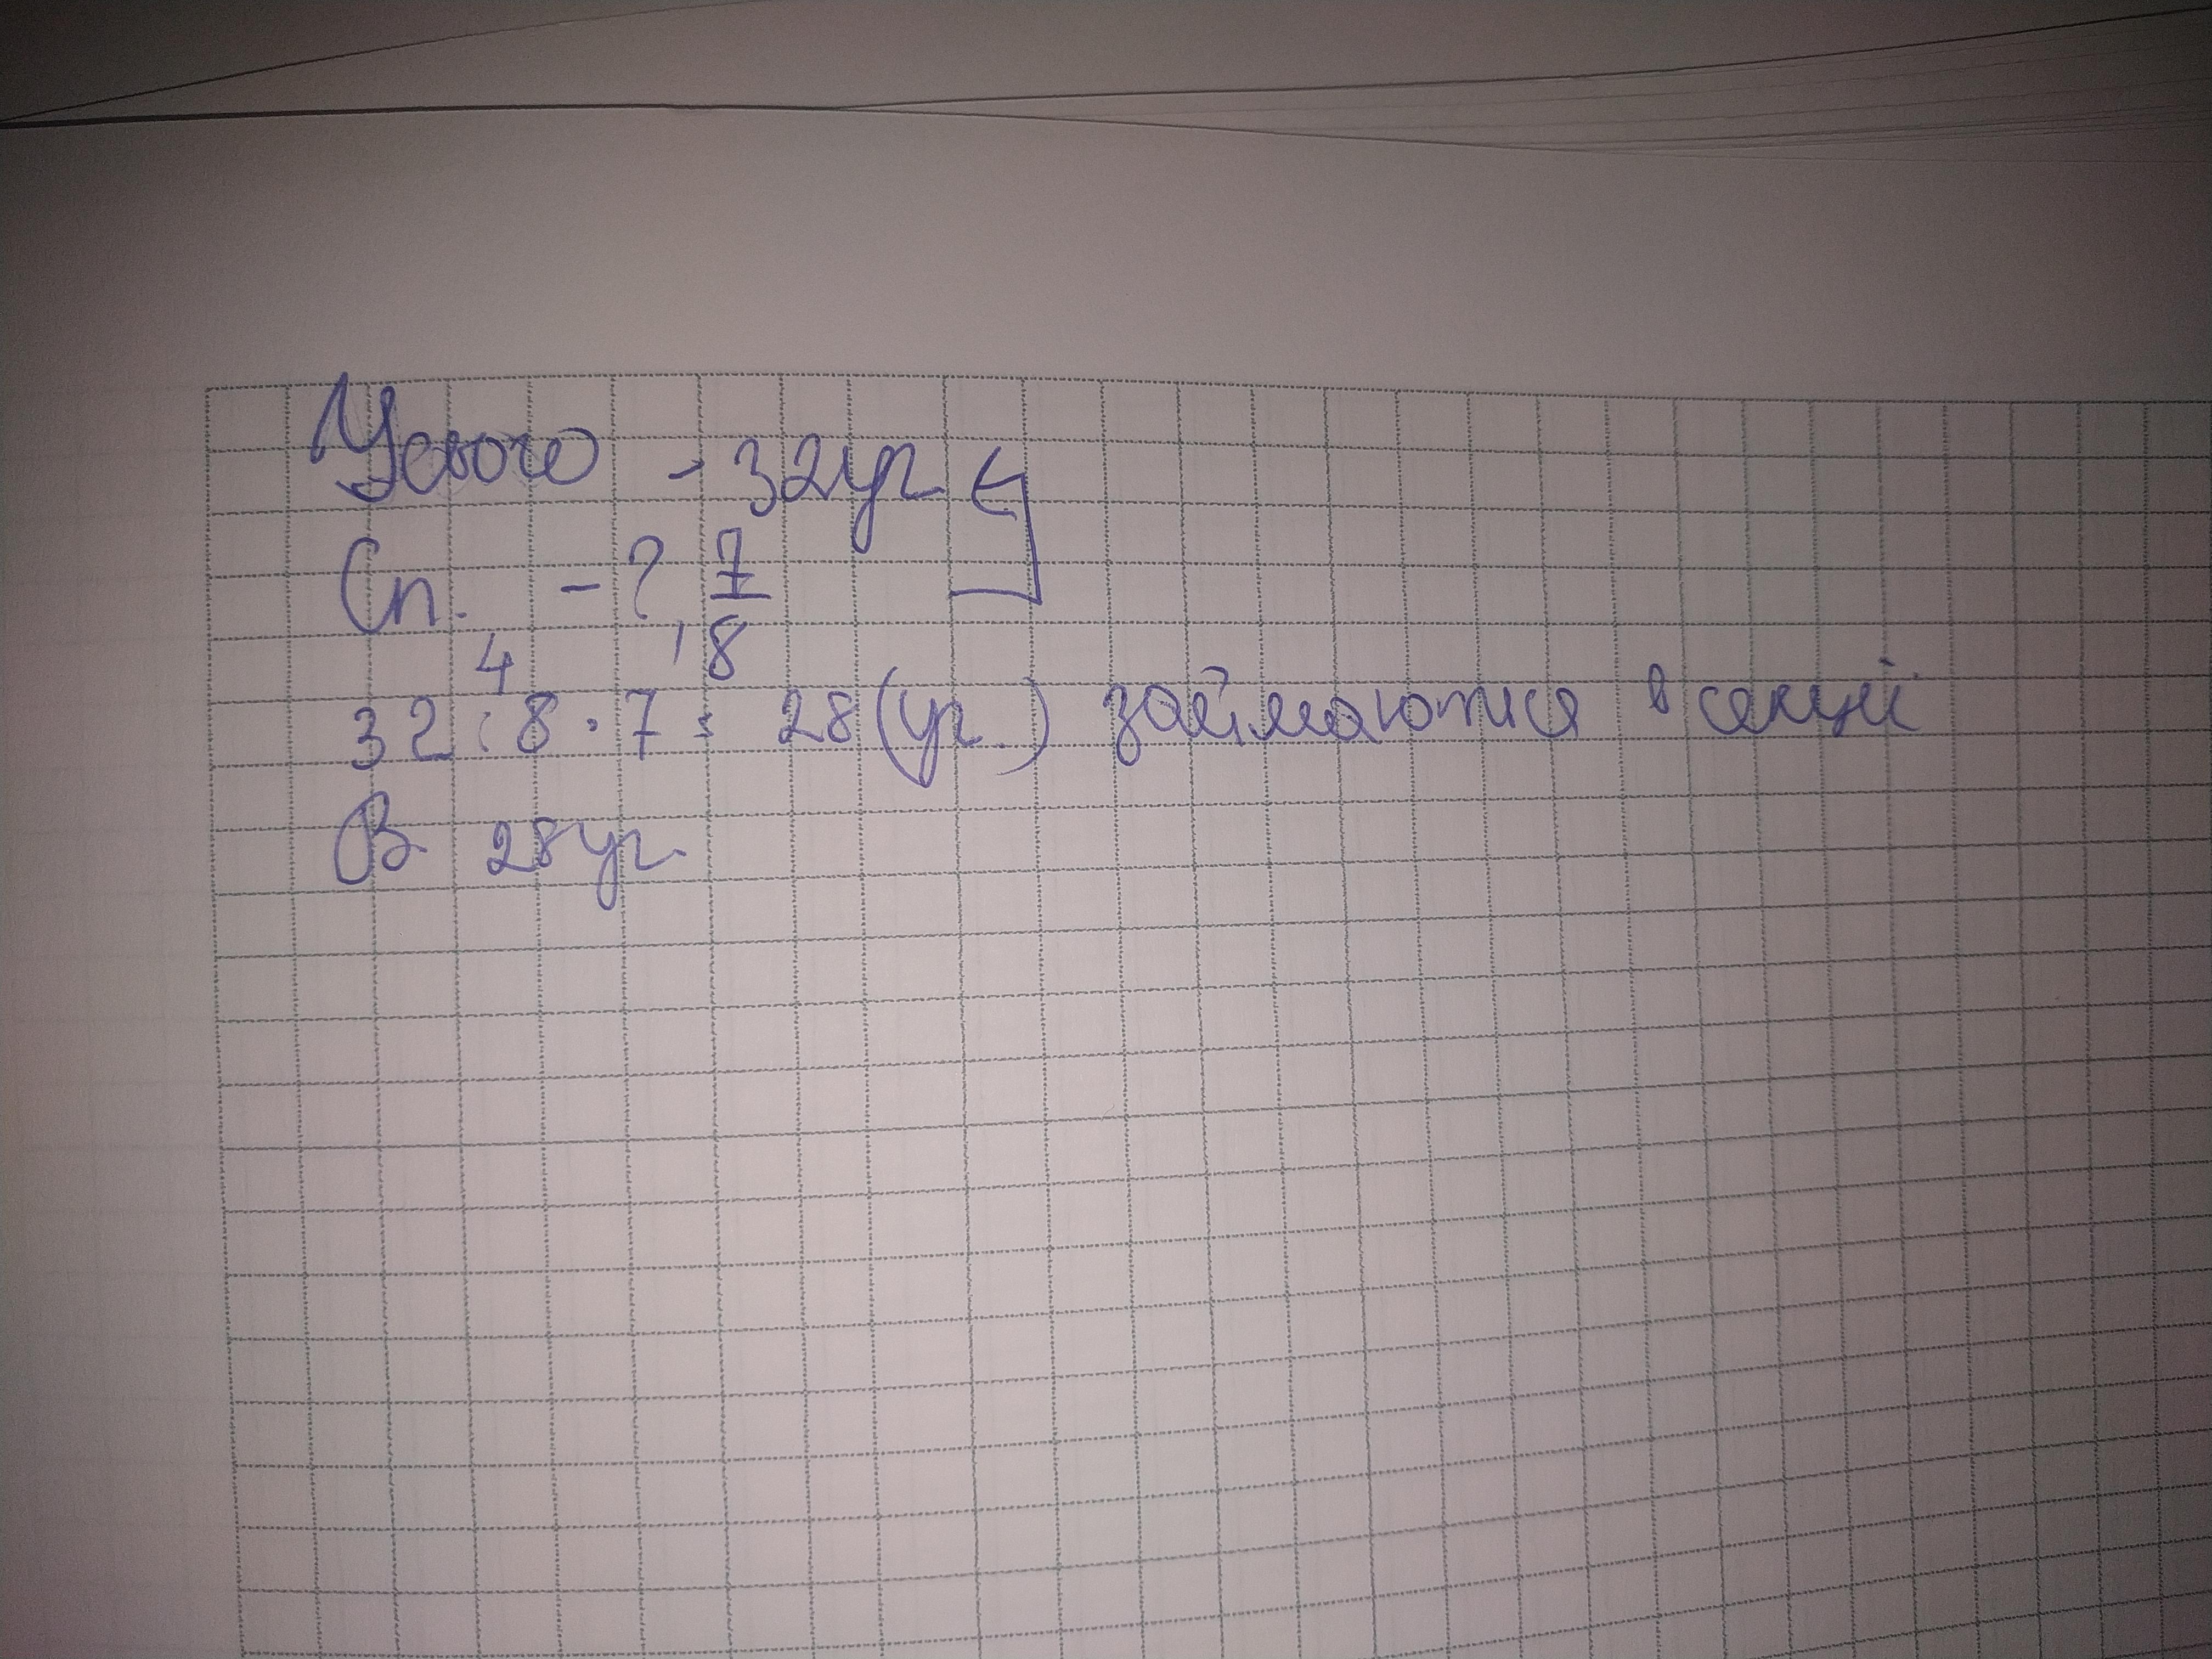 Усього - 32 уч
Сп. - ?, 7/8
4
32 : 8 · 7 = 28 (уч.) займаються в секції
В 28 уч.